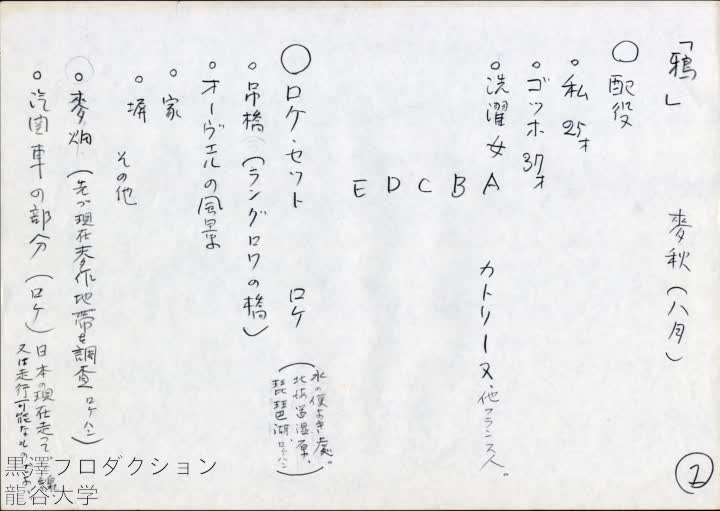 「鴉」 麥秋(八月)
○配役
○私 25才
○ゴッホ 37才
○洗濯女 A B C D E カトリーヌ・他フランス人。
○ロケ・セット ロケ
(水の便よき處。
北海道湿原、
琵琶湖、ロケハン)
○吊橋(ラングロワの橋)
○オーヴェルの風景
○家
○塀 その他
○麥畑(先づ現在麥作地帯を調査 ロケハン)
○汽関車の部分(ロケ)日本の現在走って
又は走行可能なもの
黒澤プロダクション
龍谷大学
2